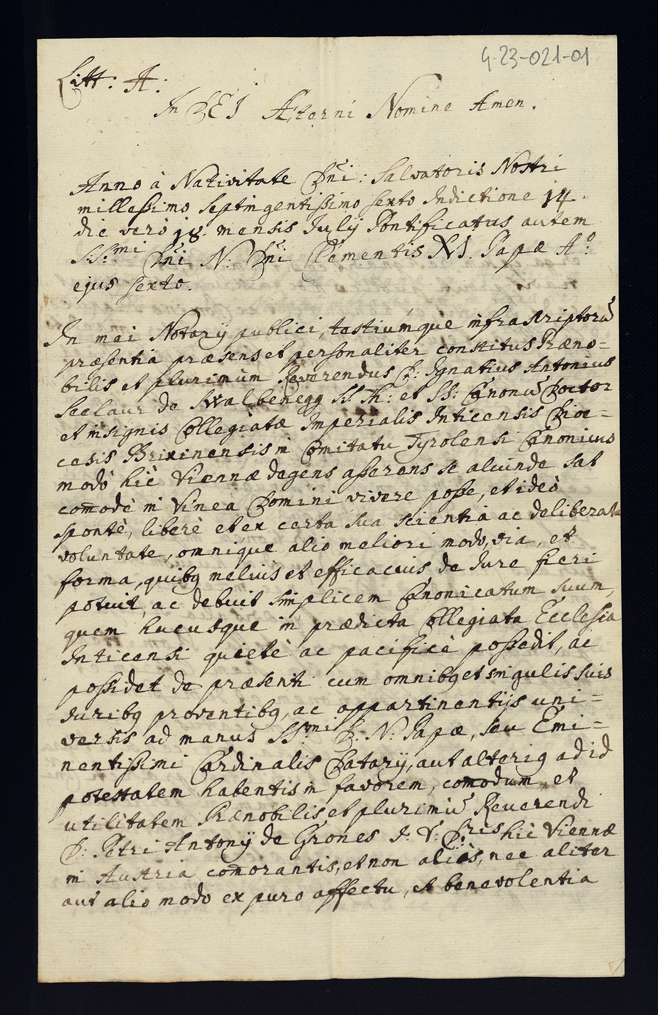 4-23-021-01
Litt: A:
In DEI Æterni Nomine Amen.
Anno à Nativitate Dni: Salvatoris Nostri
millessimo septingentissimo sexto Indictione 14.
die vero 18 mensis Julÿ Pontificatus autem
SS.mi Dni N: Dni Clementis XI. Papæ Ao.
ejus sexto.
In mei Notarÿ publici, testiumque infrascriptorũ
præsentia præsens et personaliter constitus Præno-
bilis et plurimùm Reverendus D: Ignatius Antonius
de Swalbenegg SS. Th: et SS: Canonũ Doctor
et insignis Collegiatæ Imperialis Inticensis Dioe-
cesis Brixinensis in Comitatu Tyrolensi Canonicus
modò hìc Viennæ degens asserens se aliunde sat
comodè in Vinea Domini vivere posse, et ideò
spontè, liberè et ex certa sua scientia ac deliberata
voluntate, omnique alio meliori modo, via, et
forma, quibq melius et efficacius de Jure fieri
potuit, ac debuit simplicem Canonicatum suum,
quem hucusque in prædicta Collegiata Ecclesia
Inticensi quietè ac pacificè possedit, ac
possidet de præsenti cum omnibq et singulis suis
Juribq proventibq, ac appartinentÿs uni-
versis ad manus SS.mi D. N. Papæ, seu Emi-
nentissimi Cardinalis Datarÿ, aut alteriq ad id
potestatem habentis in favorem, comodum, et
utilitatem Prænobilis et plurimũ Reverendi
D: Petri Antonÿ de Grones J. V. Dris hìc Viennæ
in Austria comorantis, et non aliàs, nec aliter
aut alio modo ex puro affectu, et benevolentia